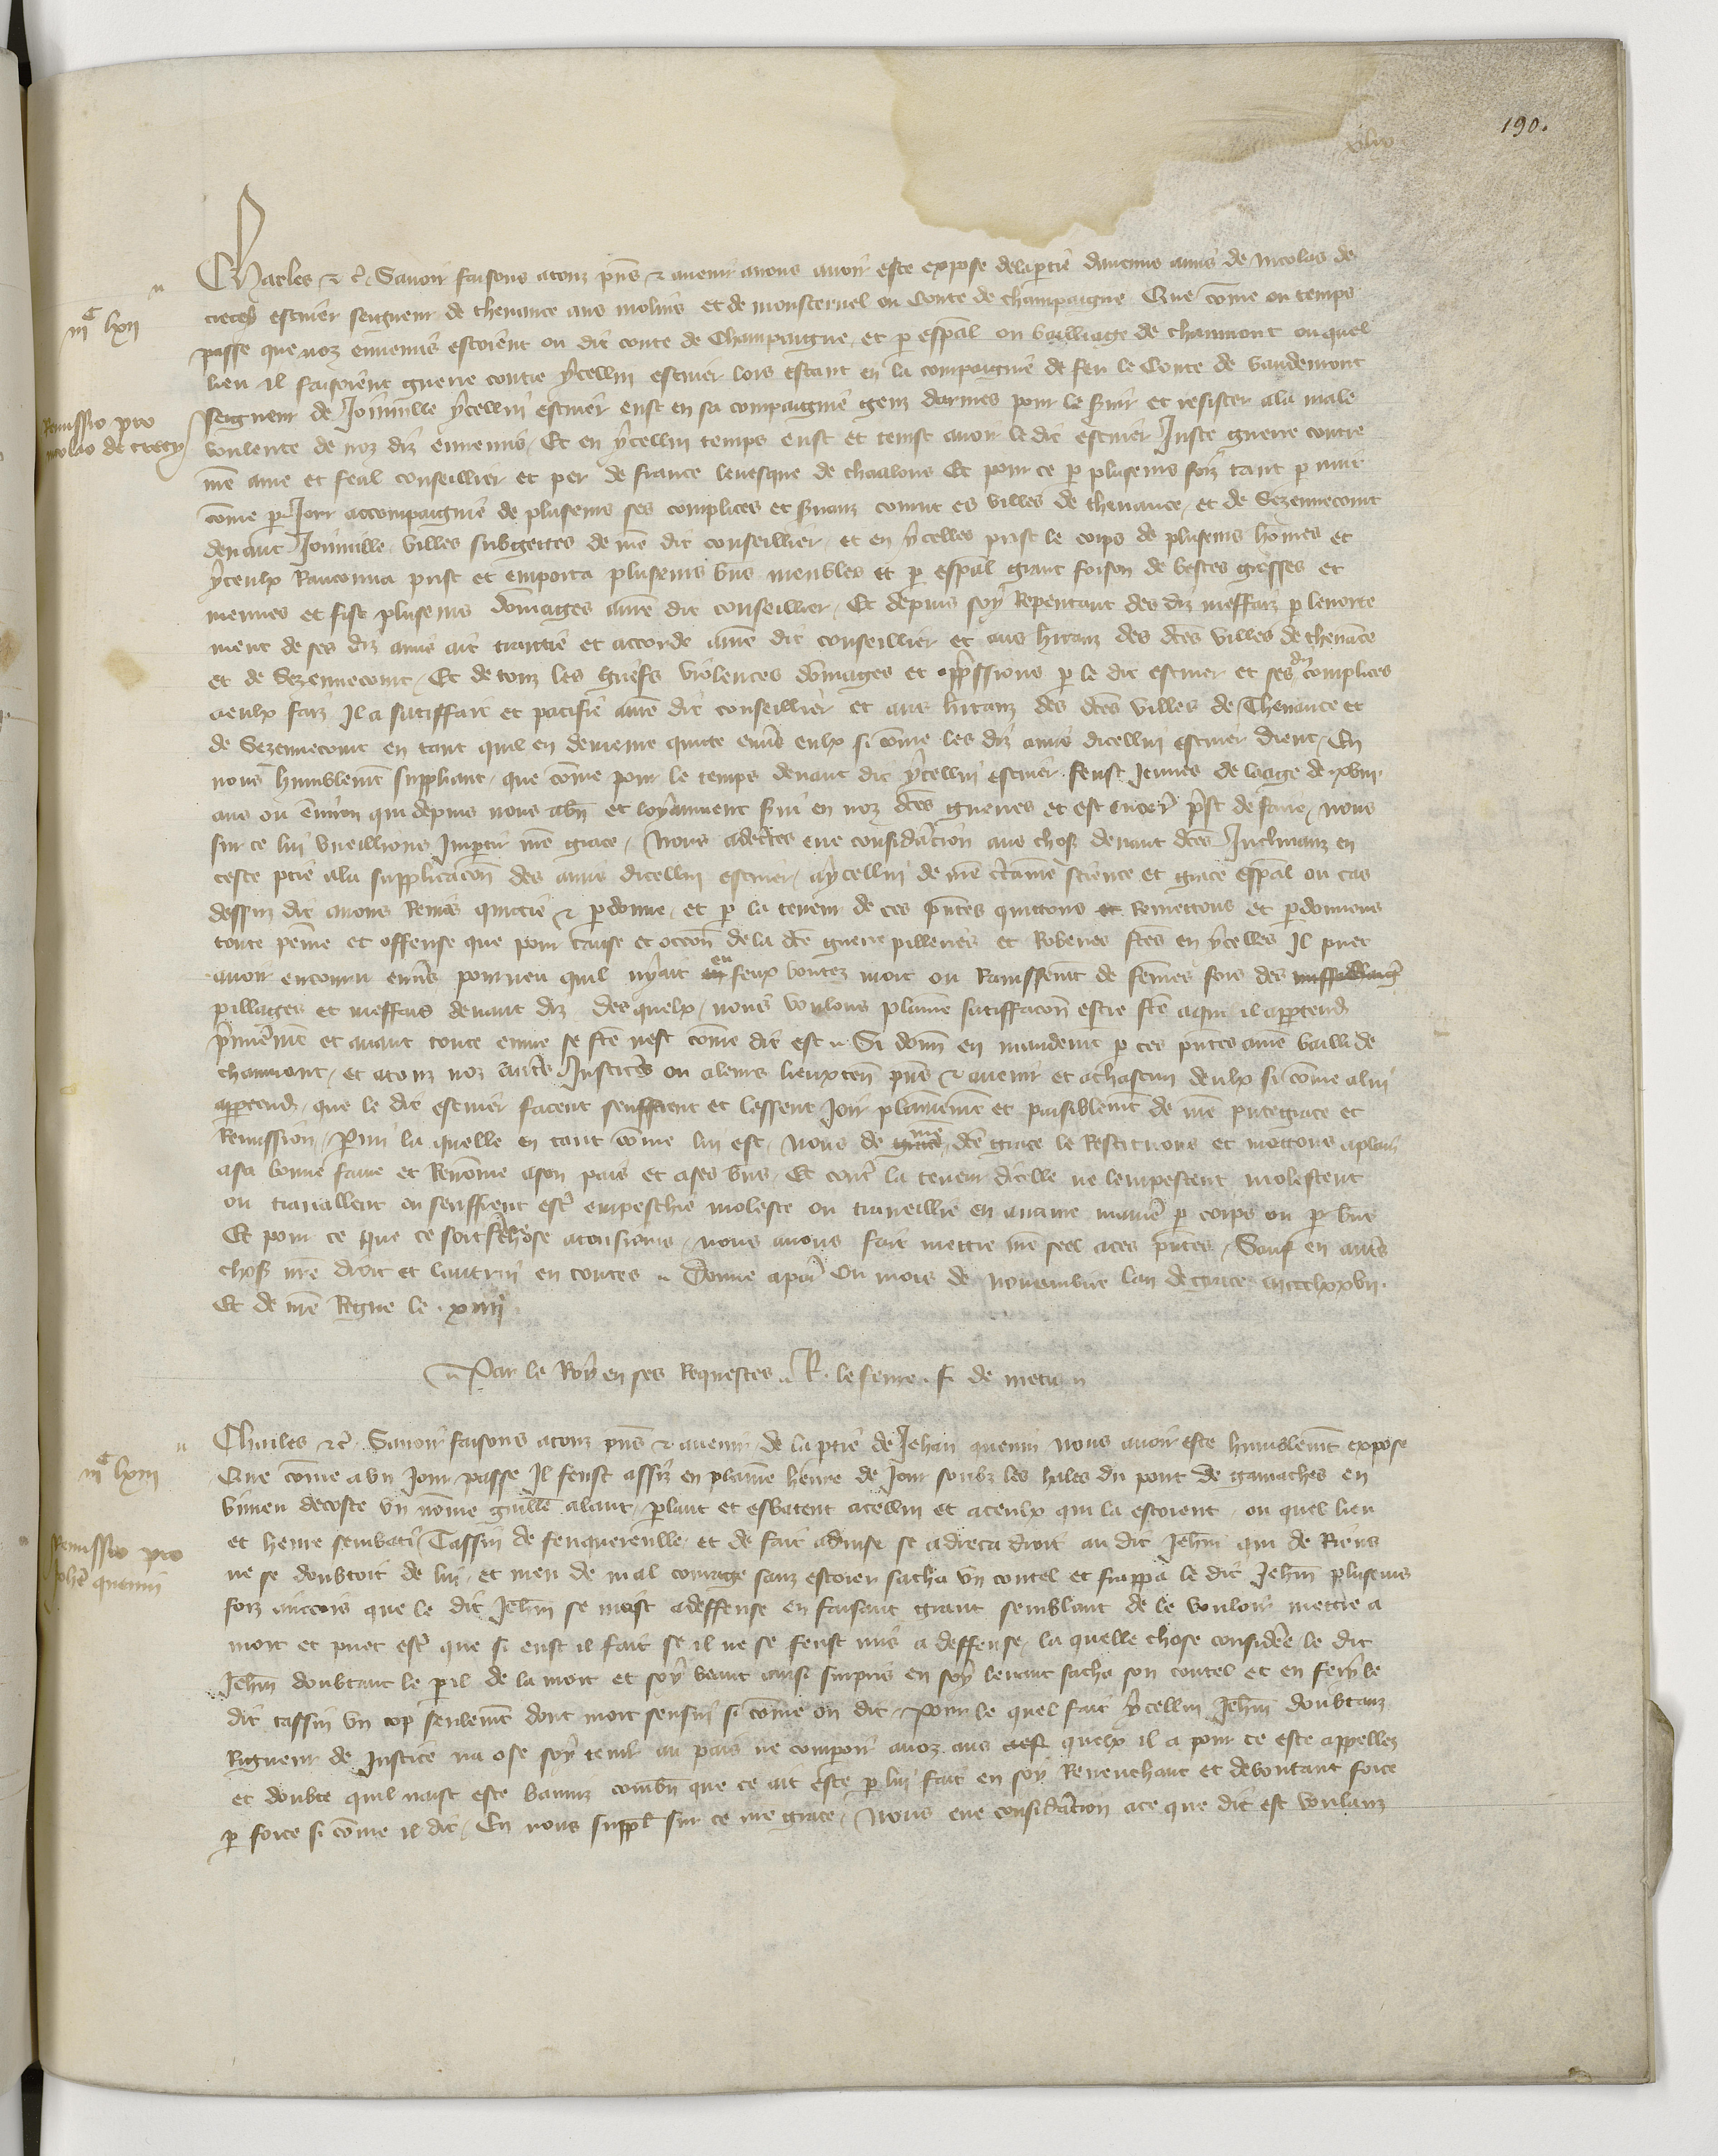 190.
xliv
Charles &c. Savoir faisons a touz pñs & avenir a nous avoir este expose de la partie daucuns amis de Nicolas de
iiᶜ lxii
crecey escuier seigneur de thenance aus molins et de monsteruel ou Conte de champaigne Que cõme ou temps
passe que noz ennemis estoient ou dit conte de Champaigne et p esp̃al ou bailliage de chaumont ouquel
lieu il faisoient guerre contre ycellui escuier lors estant en la compaignie de feu le Conte de vaudemont
Remissio pro
nicolao de crecey
seigneur de Joinville ycellui escuier eust en sa compaignie genz darmes pour le s̃vir et resister a la male
voulente de noz diz ennemis Et en ycellui temps eust et tenist avoir le dit escuier Juste guerre contre
nr̃e ame et feal conseillier et per de france levesque de chaalons Et pour ce p pluseurs foiz tant p nuit
cõme p Jour accompaignie de pluseurs ses complices et s̃vanz courut es villes de thenance et de Sezennecourt
devant Joinville villes subgettes de nr̃e dit conseillier et en ycelles prist le corps de pluseurs hõmes et
yceulx Ranconna prist et emporta pluseurs biens meubles et p esp̃al grant foison de bestes grosses et
menues et fist pluseurs dõmages a nr̃e dit conseillier Et depuis soy Repentant des diz meffaiz p lenorte
ment de ses diz amis ait traittie et accorde a nr̃e dit conseillier et aus hitanz des dc̃es villes de thenãce
et de Sezennecourt Et de touz les griefs violences dõmages et opp̃ssions p le dit escuier et ses dz complices
a eulx faiz Il a satiffait et pacifie a nr̃e dit conseillier et aus hitanz des dc̃es villes de Thenance et
de Sezennecourt en tant quil en demeure quitte env̾s eulx si cõme les diz amis dicellui escuier dient En
nous humblem̃t suppliant que cõme pour le temps devant dit ycellui escuier feust Jeunes de laage de xviii
ans ou environ qui depuis nous a bñ et loyaument s̃vi en noz dc̃es guerres et est encor̃ p̃st de faire nous
sur ce lui vueillions Impartir nr̃e grace Nous adecertes eue consid̾acion aus choses devant dc̃es Inclinanz en
ceste ptie a la supplicacõn des amis dicellui escuier a ycellui de nr̃e c̾taine science et grace esp̃al ou cas
dessus dit avons Remis quittie & pdonne et p la teneur de ces p̃ntes quittons et Remettons et pdonnons
toute peine et offense que pour cause et occõn de la dc̃e guerre pilleries et Roberies fc̃es en ycelles Il puet
avoir encouru env̾s pourveu quil ny ait en feux boutez mort ou Ravissem̃t de fẽmes fors des
pillages et meffais devant diz des quelx nous voulons plaine satiffacõn estre fc̃e a qui il apptend̾
p̃mierem̃t et avant toute euvre se fc̃e nest cõme dit est Si donñ en mandem̃t p ces p̃ntes a nr̃e bailli de
chaumont et a touz noz autres Justic̾s ou a leurs lieuxteñ pñs & avenir et a chascun deulx si cõme a lui
apptend̾ que le dit escuier facent seuffrent et lessent Joir plainem̃t et paisiblem̃t de nr̃e p̃nte grace et
Remission Parmi la quelle en tant cõme lui est Nous de grace nr̃e dc̃e grace le Restituons et mettons aplain
a sa bonne fame et Renõmee a son pais et a ses biens Et contr̃ la teneur dicelle ne lempeschent molestent
ou travaillent ou seuffrent estr̃ empeschie moleste ou traveillie en aucune manie̾ p corps ou p biens
Et pour ce que ce soit chose a tousiours nous avons fait mettre nr̃e seel a ces p̃ntes Sauf en aut̾s
choses nr̃e droit et lautrui en toutes Donne a paris Ou mois de Novembre lan de grace mccclxxvii
Et de nr̃e Regne le xiiii
Par le Roy en ses Requestes R. lefevre f. de metis
Charles &c̃ Savoir faisons a touz pñs & avenir de la ptie de Jehan quenin nous avoir este humblem̃t expose
iiᶜ lxiii
Que cõme a un Jour passe Il feust assiz en plaine heure de Jour soubz les hales du pont de gamaches en
vimeu decoste un nõme guill̃e alant plant et esbatent a cellui et a ceulx qui la estoient ou quel lieu
Remissio pro
Johe quenin
et heure sembati Tassin de fenquereulle et de fait advise se adreca droit au dit Jeh̃n qui de Riens
ne se doubtoit de lui et meu de mal courage sanz escrier sacha un coutel et frappa le dit Jeh̃n pluseurs
foiz aincois que le dit Jeh̃n se meist adeffense en faisant grant semblant de le vouloir mettre a
mort et puet estr̃ que si eust il fait se il ne se feust mis a deffense la quelle chose consid̾ee le dit
Jeh̃n doubtant le pil de la mort et soy veant ainsi surpris en soy levant sacha son coutel et en fery le
dit tassin un cop seulem̃t dont mort sensui si cõme on dit Pour le quel fait ycellui Jeh̃n doubtanz
Rigueur de Justice na ose soy tenir au pais ne comparoir a noz aus quelx il a pour ce este appellez
et doubte quil naist este banniz combñ que ce ait este p lui fait en soy Revenchant et deboutant force
p force si cõme il dit En nous suppl̃ sur ce nr̃e grace Nous eue consid̾acion a ce que dit est voulanz